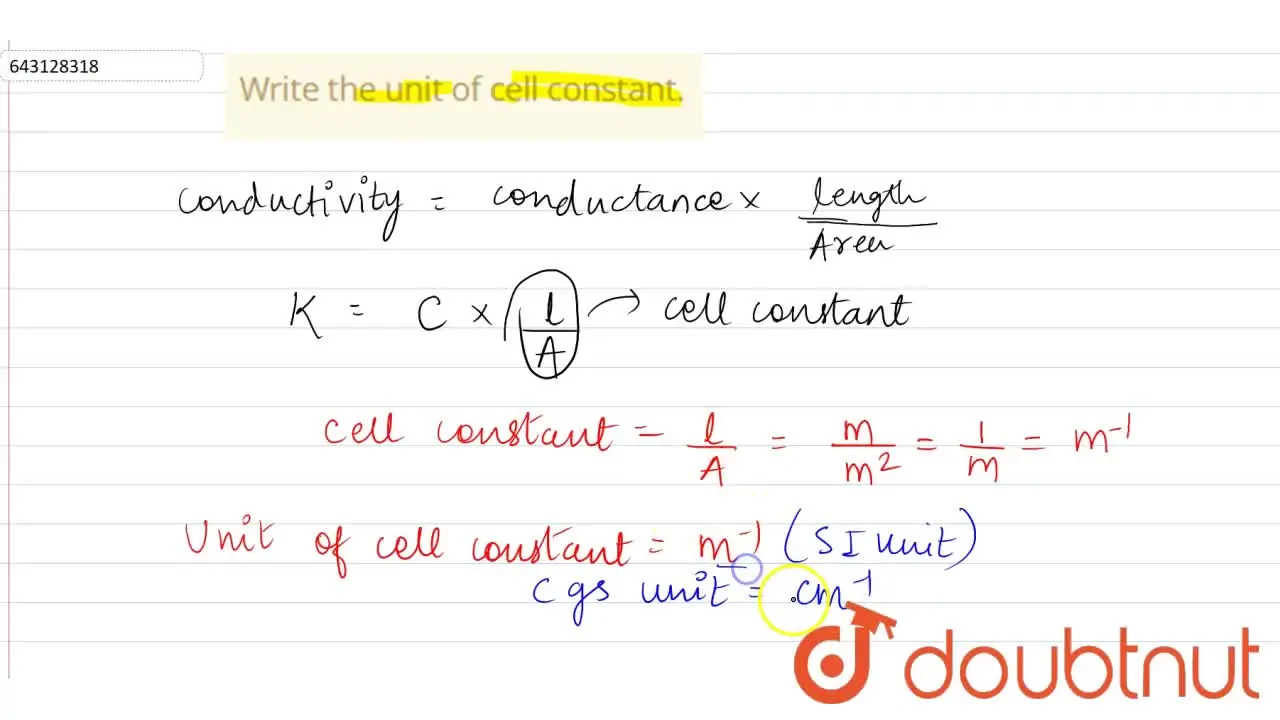 643128318
Write the unit of cell constant.
conductivity = conductance × length / Area
K = C × l / A → cell constant
cell constant = l / A = m / m² = 1 / m = m⁻¹
Unit of cell constant = m⁻¹ (SI unit)
Cgs unit = cm⁻¹
doubtnut